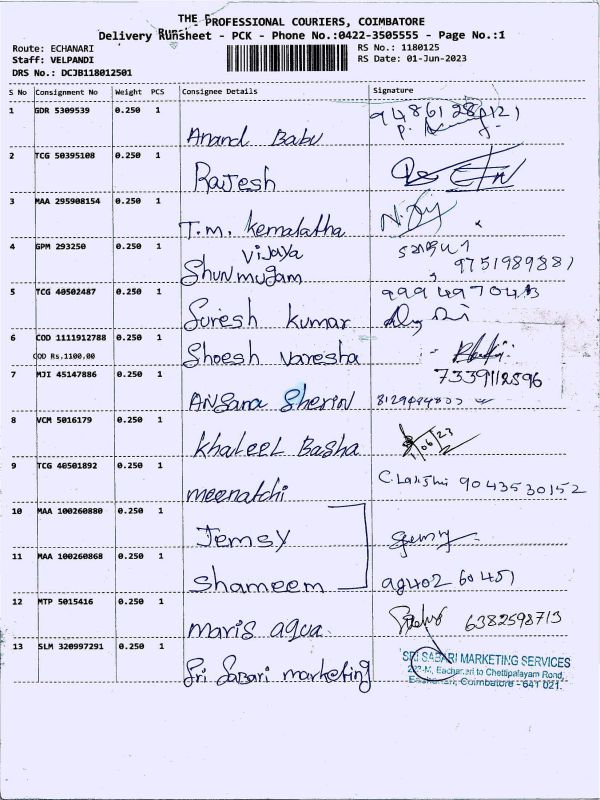 THE PROFESSIONAL COURIERS, COIMBATORE
Delivery Runsheet - PCK - Phone No.:0422-3505555 - Page No.:1
Route: ECHANARI
RS No.: 1180125
Staff: VELPANDI
RS Date: 01-Jun-2023
DRS No.: DCJB118012501
S No Consignment No Weight PCS Consignee Details Signature
1 GDR 5309539 0.250 1
Anand Babu
2 TCG 50395108 0.250 1
Rajesh
3 MAA 295908154 0.250 1
T.m. kemalatha
4 GPM 293250 0.250 1
Vijaya
Shunmugam
9751989881
5 TCG 40502487 0.250 1
9994970413
Suresh kumar
6 COD 1111912788 0.250 1
COD Rs.1100.00
Shoesh varesha
7 MJI 45147886 0.250 1
7339112596
Ansana Sherin
8 VCM 5016179 0.250 1
1/06/23
khaleel Basha
9 TCG 40501892 0.250 1
9043530152
meenatchi
10 MAA 100260880 0.250 1
Jemsy
11 MAA 100260868 0.250 1
Shameem
12 MTP 5015416 0.250 1
6382598713
maris aqua
13 SLM 320997291 0.250 1
Sri Sabari marketing
SRI SABARI MARKETING SERVICES
Eachanari to Chettipalayam Road,
Coimbatore - 641 021.